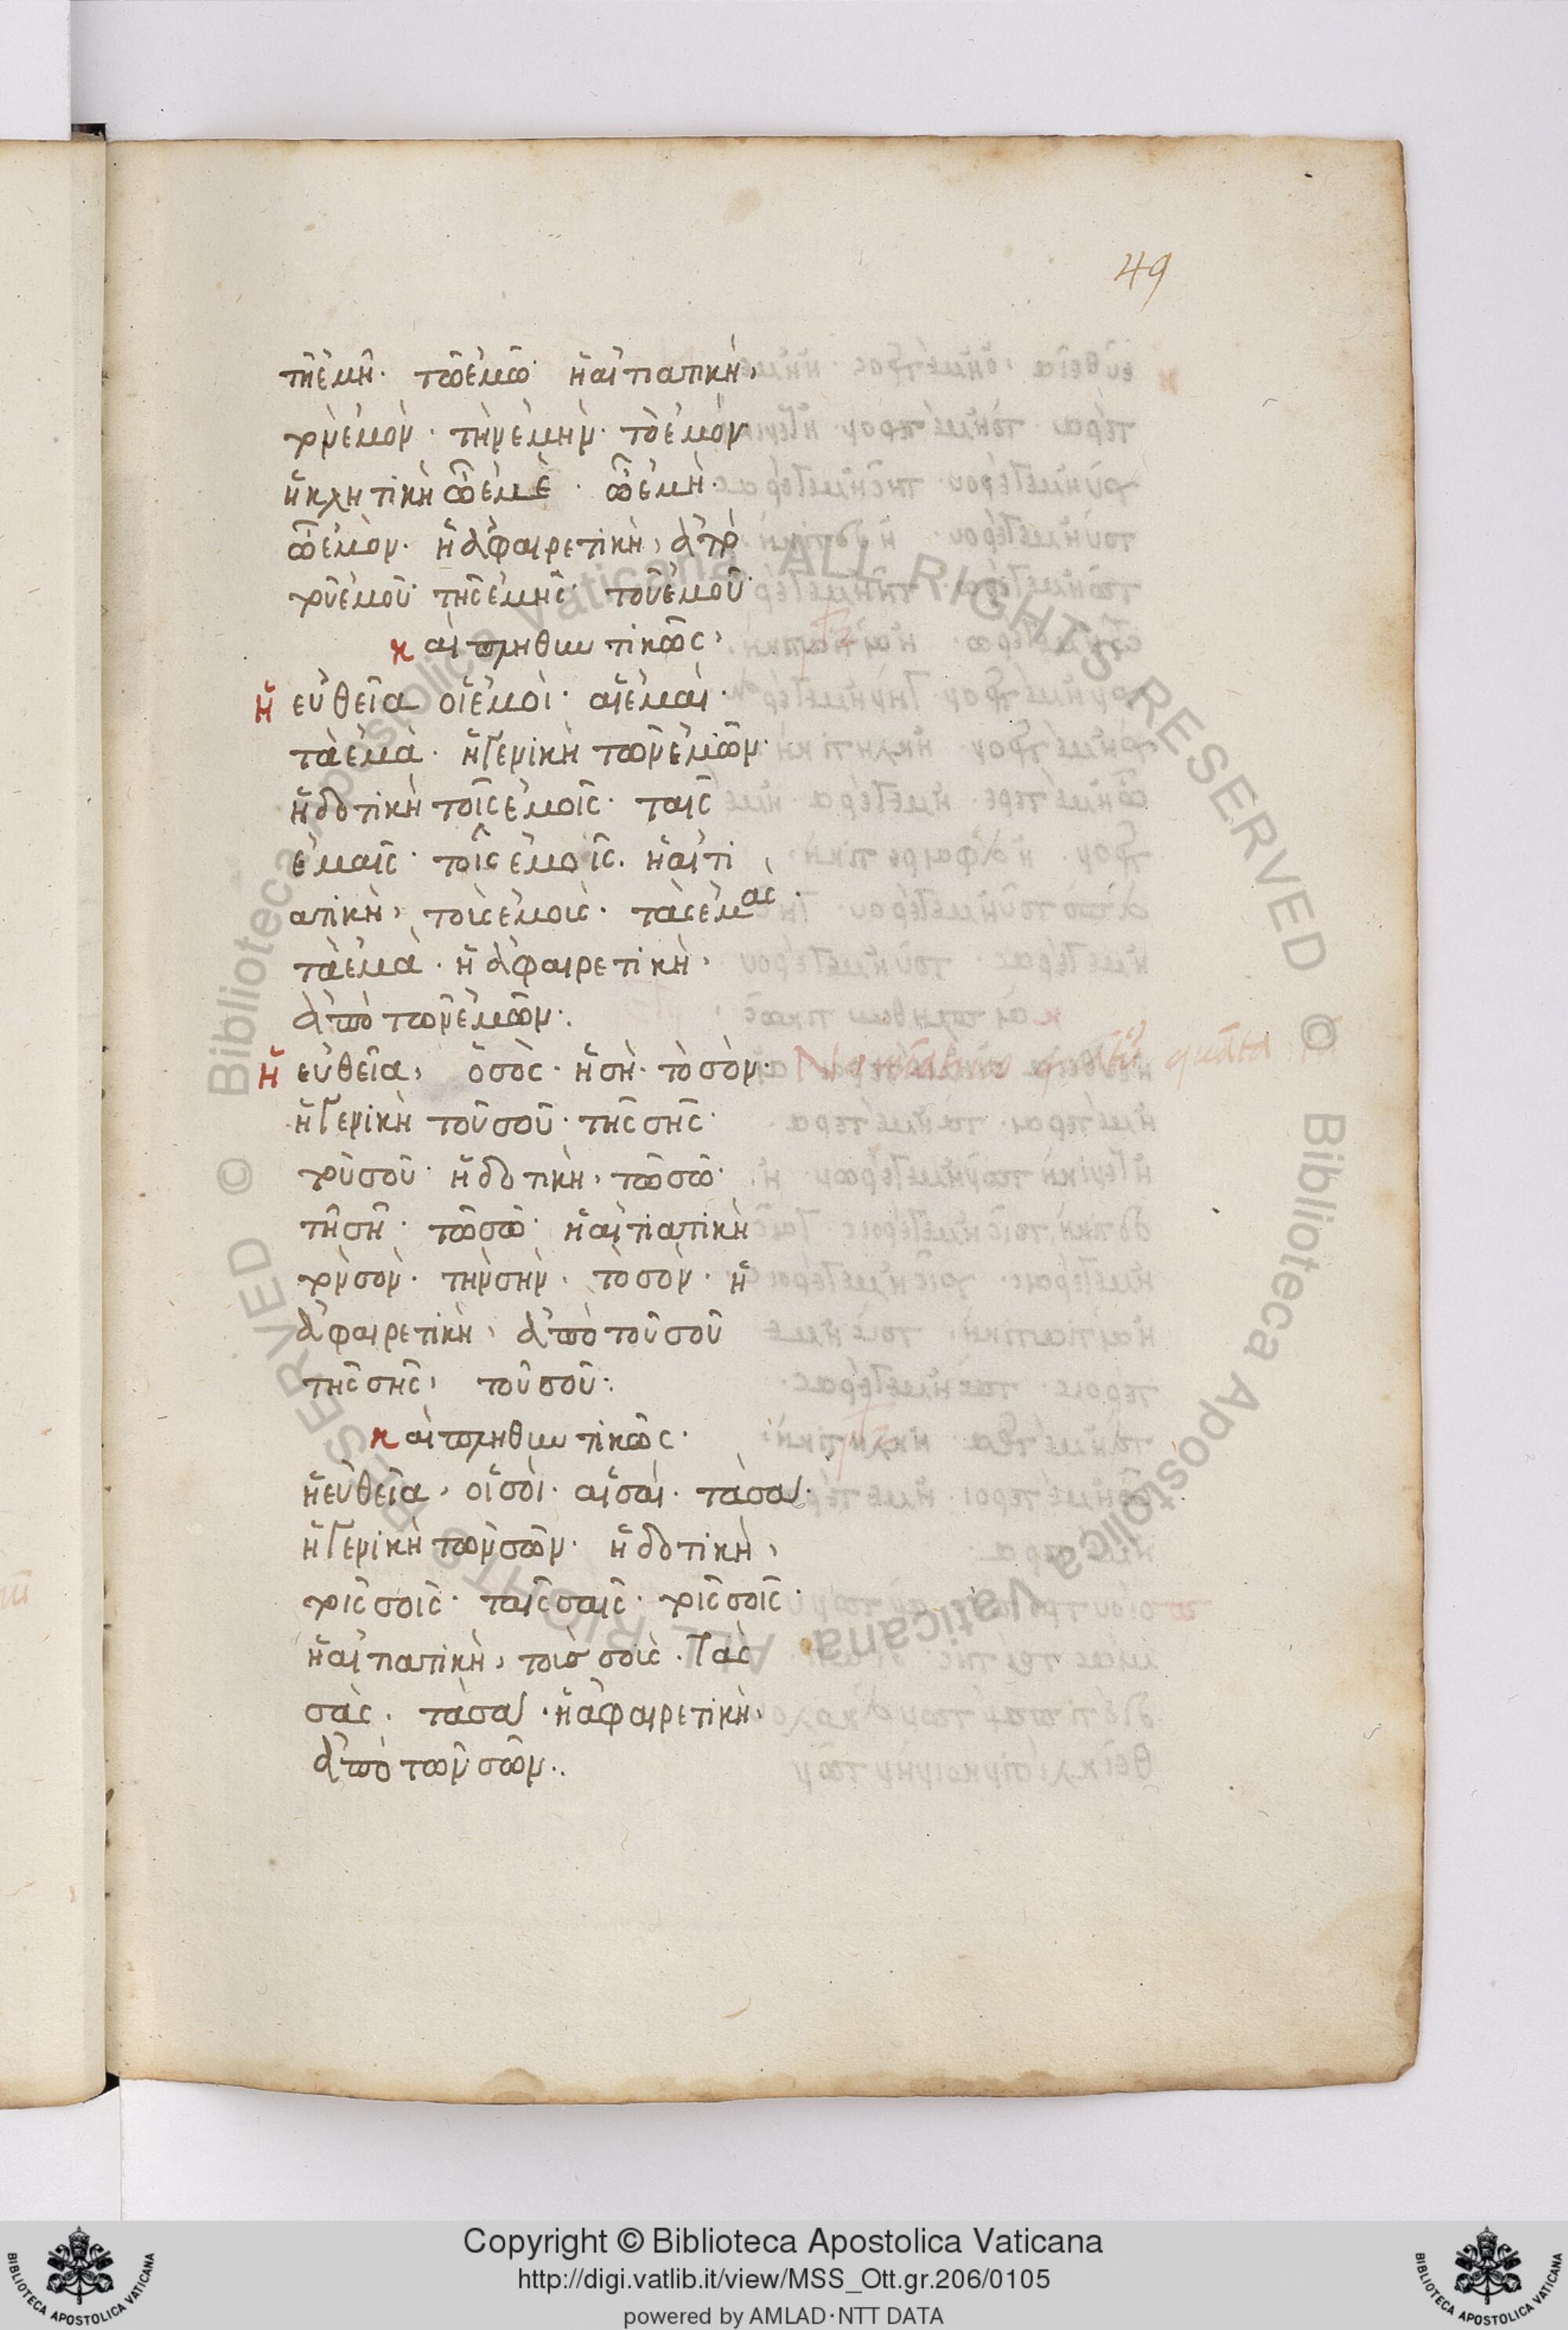 49
τῆ ἐμῆ· τῶ ἐμῶ· ἡ αἰτιατικὴ,
τὸν ἐμὸν· τὴν ἐμὴν· τὸ ἐμὸν
ἡ κλητικὴ ὦ ἐμὲ· ὦ ἐμὴ·
ὦ ἐμὸν· ἡ ἀφαιρετικὴ, ἀπὸ
τοῦ ἐμοῦ· τῆς ἐμῆς· τοῦ ἐμοῦ·
καὶ πληθυντικῶς,
ἡ εὐθεῖα οἱ ἐμοὶ· αἱ ἐμαὶ·
τὰ ἐμὰ· ἡ γενικὴ τῶν ἐμῶν·
ἡ δοτικὴ τοῖς ἐμοῖς· ταῖς
ἐμαῖς· τοῖς ἐμοῖς· ἡ αἰτι
ατικὴ, τοὺς ἐμοὺς· τὰς ἐμὰς·
τὰ ἐμὰ· ἡ ἀφαιρετικὴ,
ἀπὸ τῶν ἐμῶν:
ἡ εὐθεῖα, ὁ σὸς· ἡ σὴ· τὸ σὸν·
ἡ γενικὴ τοῦ σοῦ· τῆς σῆς·
τοῦ σοῦ· ἡ δοτικὴ, τῶ σῶ·
τῆ σῆ· τῶ σῶ· ἡ αἰτιατικὴ
τὸν σὸν· τὴν σὴν· τὸ σὸν· ἡ
ἀφαιρετικὴ, ἀπὸ τοῦ σοῦ
τῆς σῆς, τοῦ σοῦ:
καὶ πληθυντικῶς·
ἡ εὐθεῖα, οἱ σοὶ· αἱ σαὶ· τὰ σὰ·
ἡ γενικὴ τῶν σῶν· ἡ δοτικὴ,
τοῖς σοῖς· ταῖς σαῖς· τοῖς σοῖς·
ἡ αἰτιατικὴ, τοὺς σοὺς· τὰς
σὰς· τὰ σὰ· ἡ ἀφαιρετικὴ,
ἀπὸ τῶν σῶν:
© Biblioteca Apostolica Vaticana ALL RIGHTS RESERVED © Biblioteca Apostolica Vaticana ALL RIGHTS RESERVED
Copyright © Biblioteca Apostolica Vaticana
http://digi.vatlib.it/view/MSS_Ott.gr.206/0105
powered by AMLAD·NTT DATA
BIBLIOTECA APOSTOLICA VATICANA
BIBLIOTECA APOSTOLICA VATICANA